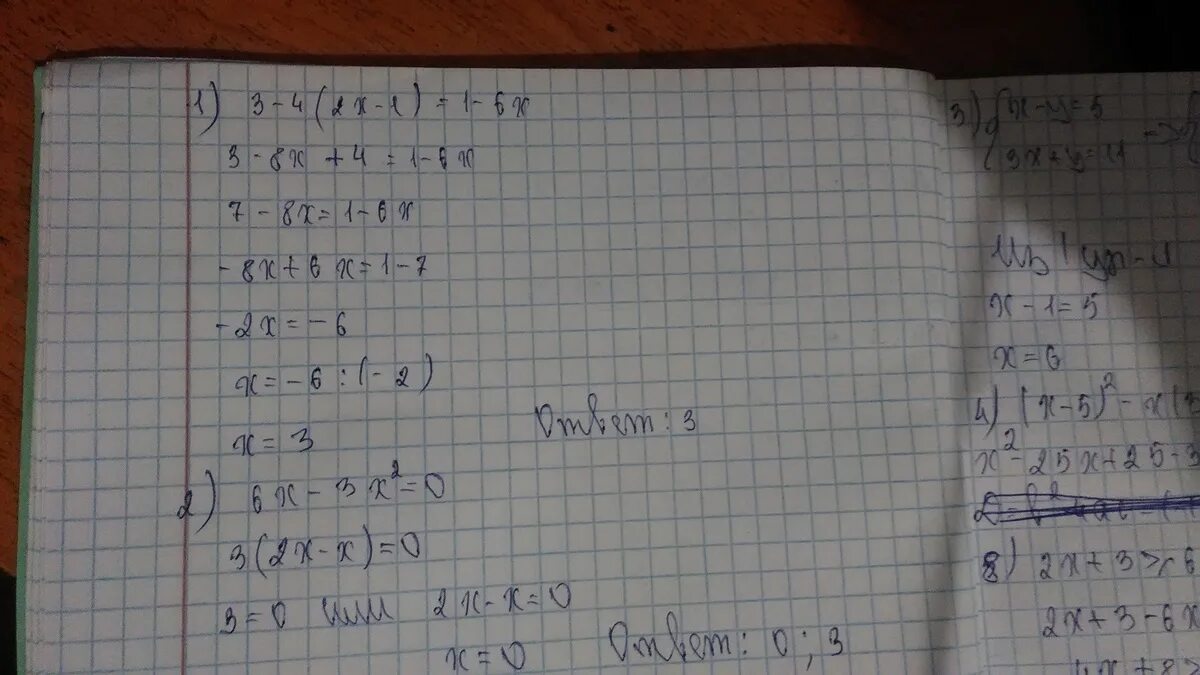 1) 3 - 4(2x - 1) = 1 - 6x
3 - 8x + 4 = 1 - 6x
7 - 8x = 1 - 6x
- 8x + 6x = 1 - 7
- 2x = - 6
x = - 6 : (- 2)
x = 3
Ответ: 3
2) 6x - 3x² = 0
3(2x - x) = 0
3 = 0 или 2x - x = 0
x = 0
Ответ: 0; 3
3) { x - y = 5
{ 3x + y =
Из 1
x - 1 = 5
x = 6
4) (x - 5)² - x(
x² - 25x + 25 - 3
8) 2x + 3 > 6
2x + 3 - 6x